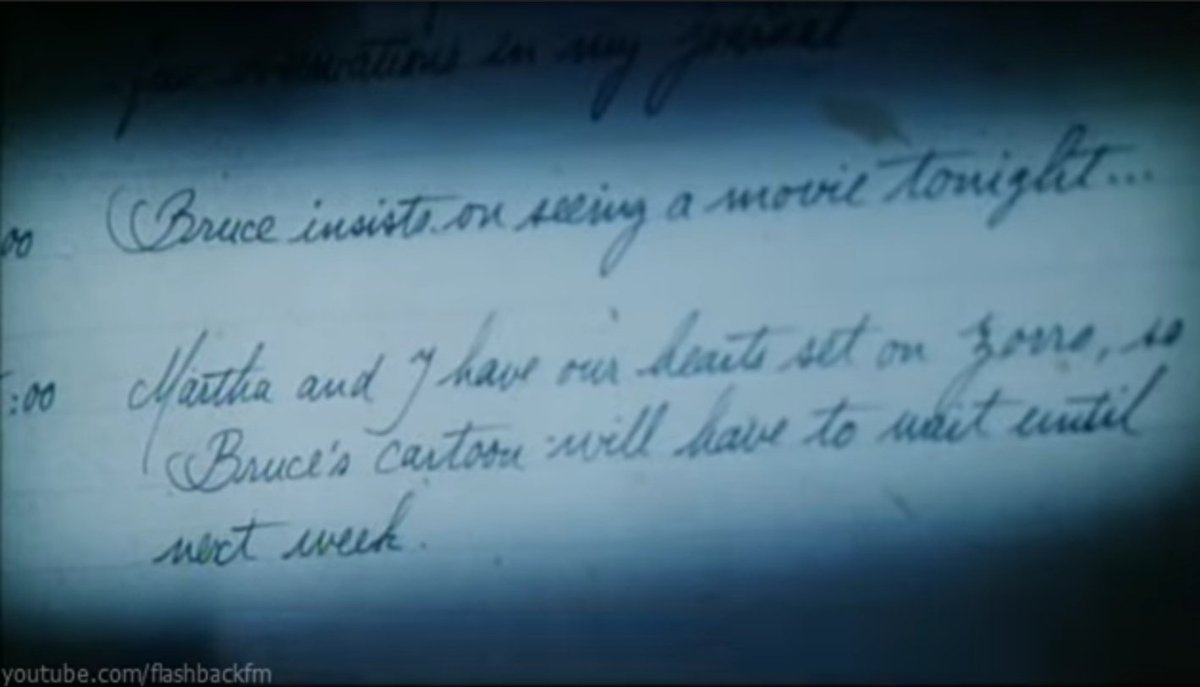 in my journal
:00 Bruce insists on seeing a movie tonight...
:00 Martha and I have our hearts set on Zorro, so
Bruce's cartoon will have to wait until
next week.
youtube.com/flashbackfm